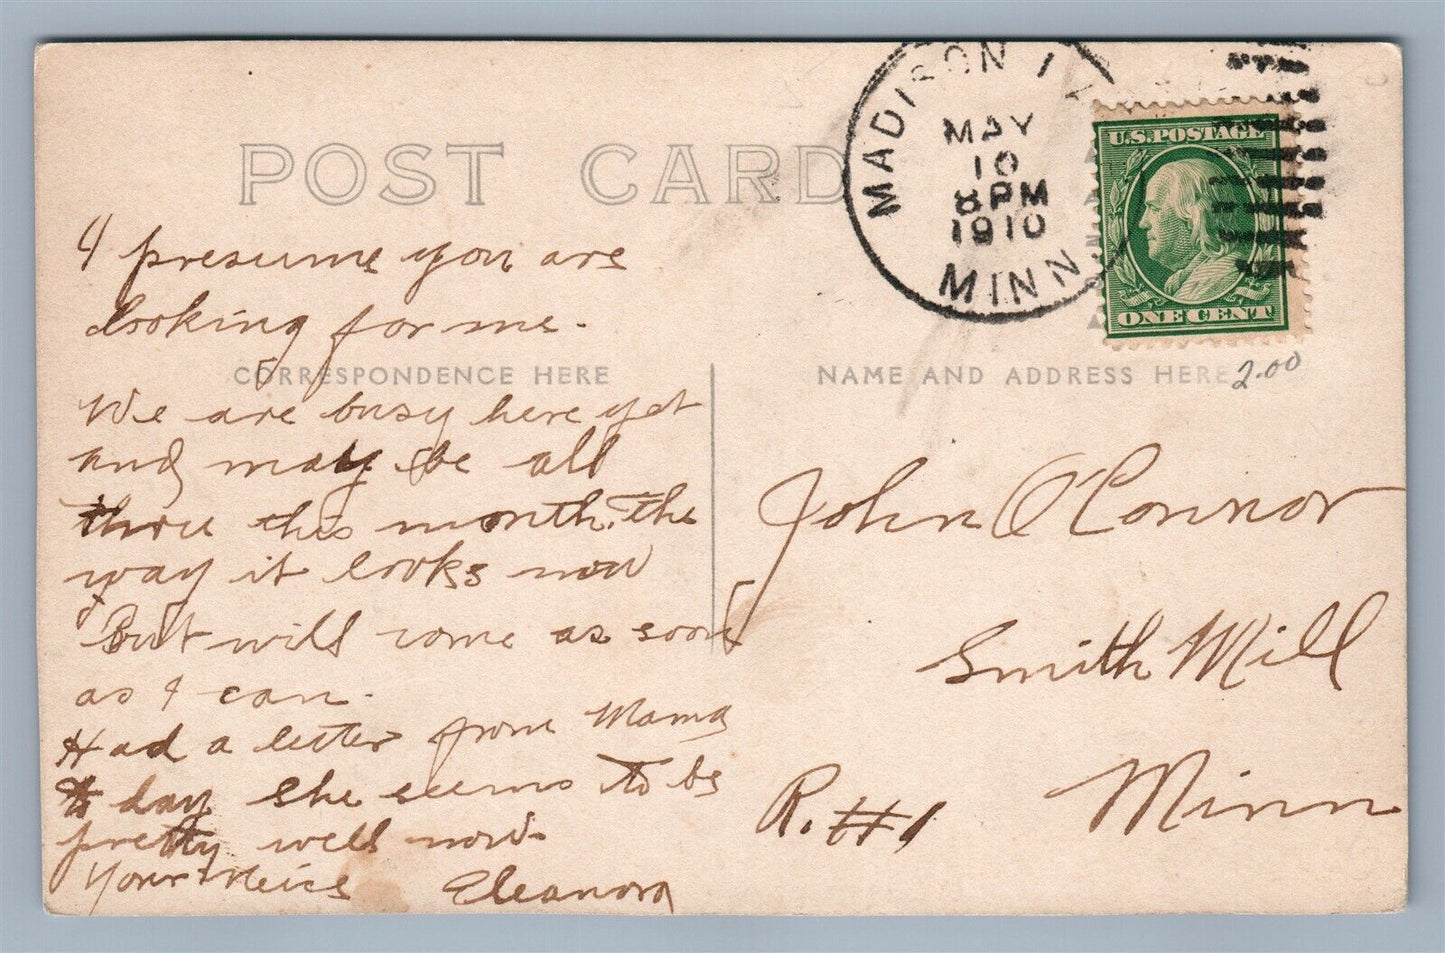 POST CARD
MADISON
MAY
10
8 PM
1910
MINN
U.S. POSTAGE
ONE CENT
2.00
CORRESPONDENCE HERE
NAME AND ADDRESS HERE
I presume you are
looking for me.
We are busy here yet
and may be all
throu this month, the
way it looks now
But will come as soon
as I can.
Had a letter from Mama
to day she seems to be
pretty well now
Your Neice Eleanora
John O'Connor
Smith Mill
Minn
R. # 1